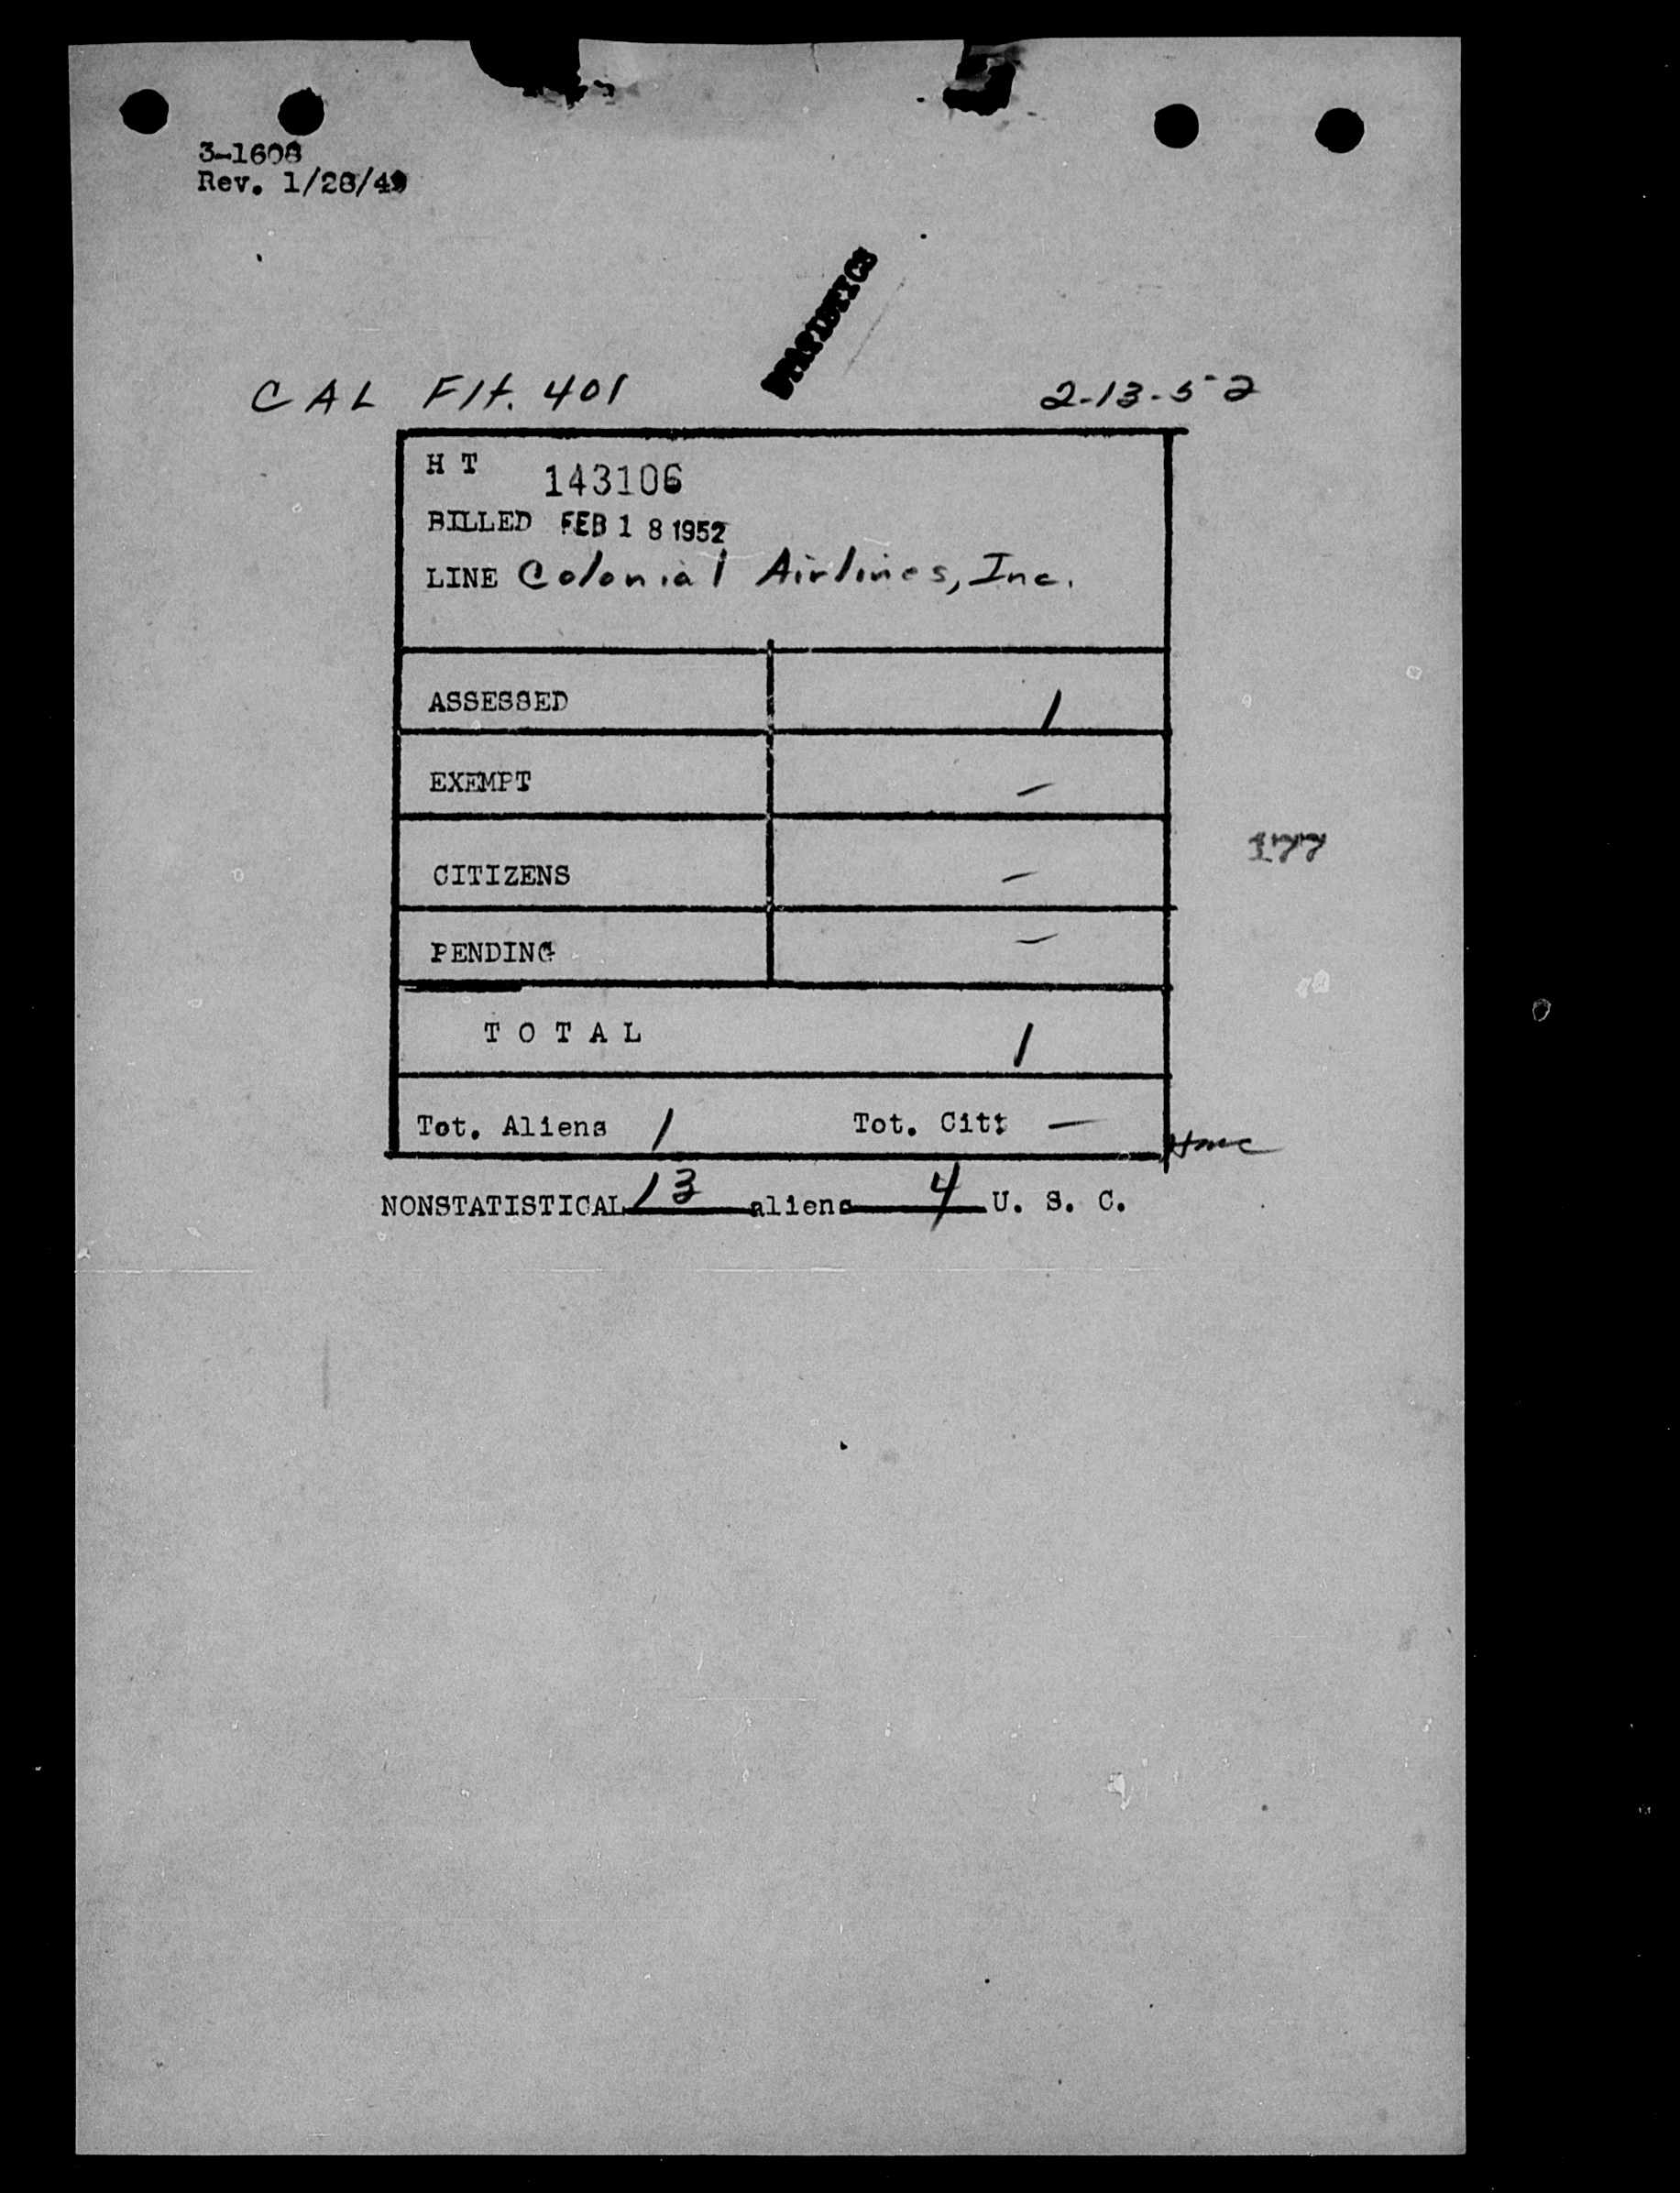 3-1608
Rev. 1/28/49
STATISTICS
CAL Flt. 401 2-13-52
H T 143106
BILLED FEB 18 1952
LINE Colonial Airlines, Inc.
ASSESSED 1
EXEMPT —
CITIZENS —
177
PENDING —
T O T A L 1
Tot. Aliens 1 Tot. Citz —
NONSTATISTICAL 13 aliens 4 U. S. C.